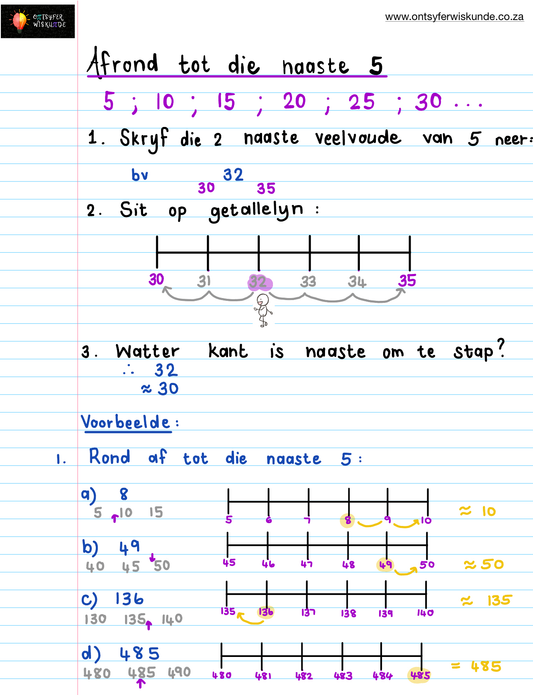 ONTSYFER
WISKUNDE
www.ontsyferwiskunde.co.za
Afrond tot die naaste 5
5 ; 10 ; 15 ; 20 ; 25 ; 30 ...
1. Skryf die 2 naaste veelvoude van 5 neer:
bv 32
30 35
2. Sit op getallelyn :
30 31 32 33 34 35
3. Watter kant is naaste om te stap?
∴ 32
≈ 30
Voorbeelde :
1. Rond af tot die naaste 5 :
a) 8
5 10 15
5 6 7 8 9 10
≈ 10
b) 49
40 45 50
45 46 47 48 49 50
≈ 50
c) 136
130 135 140
135 136 137 138 139 140
≈ 135
d) 485
480 485 490
480 481 482 483 484 485
= 485